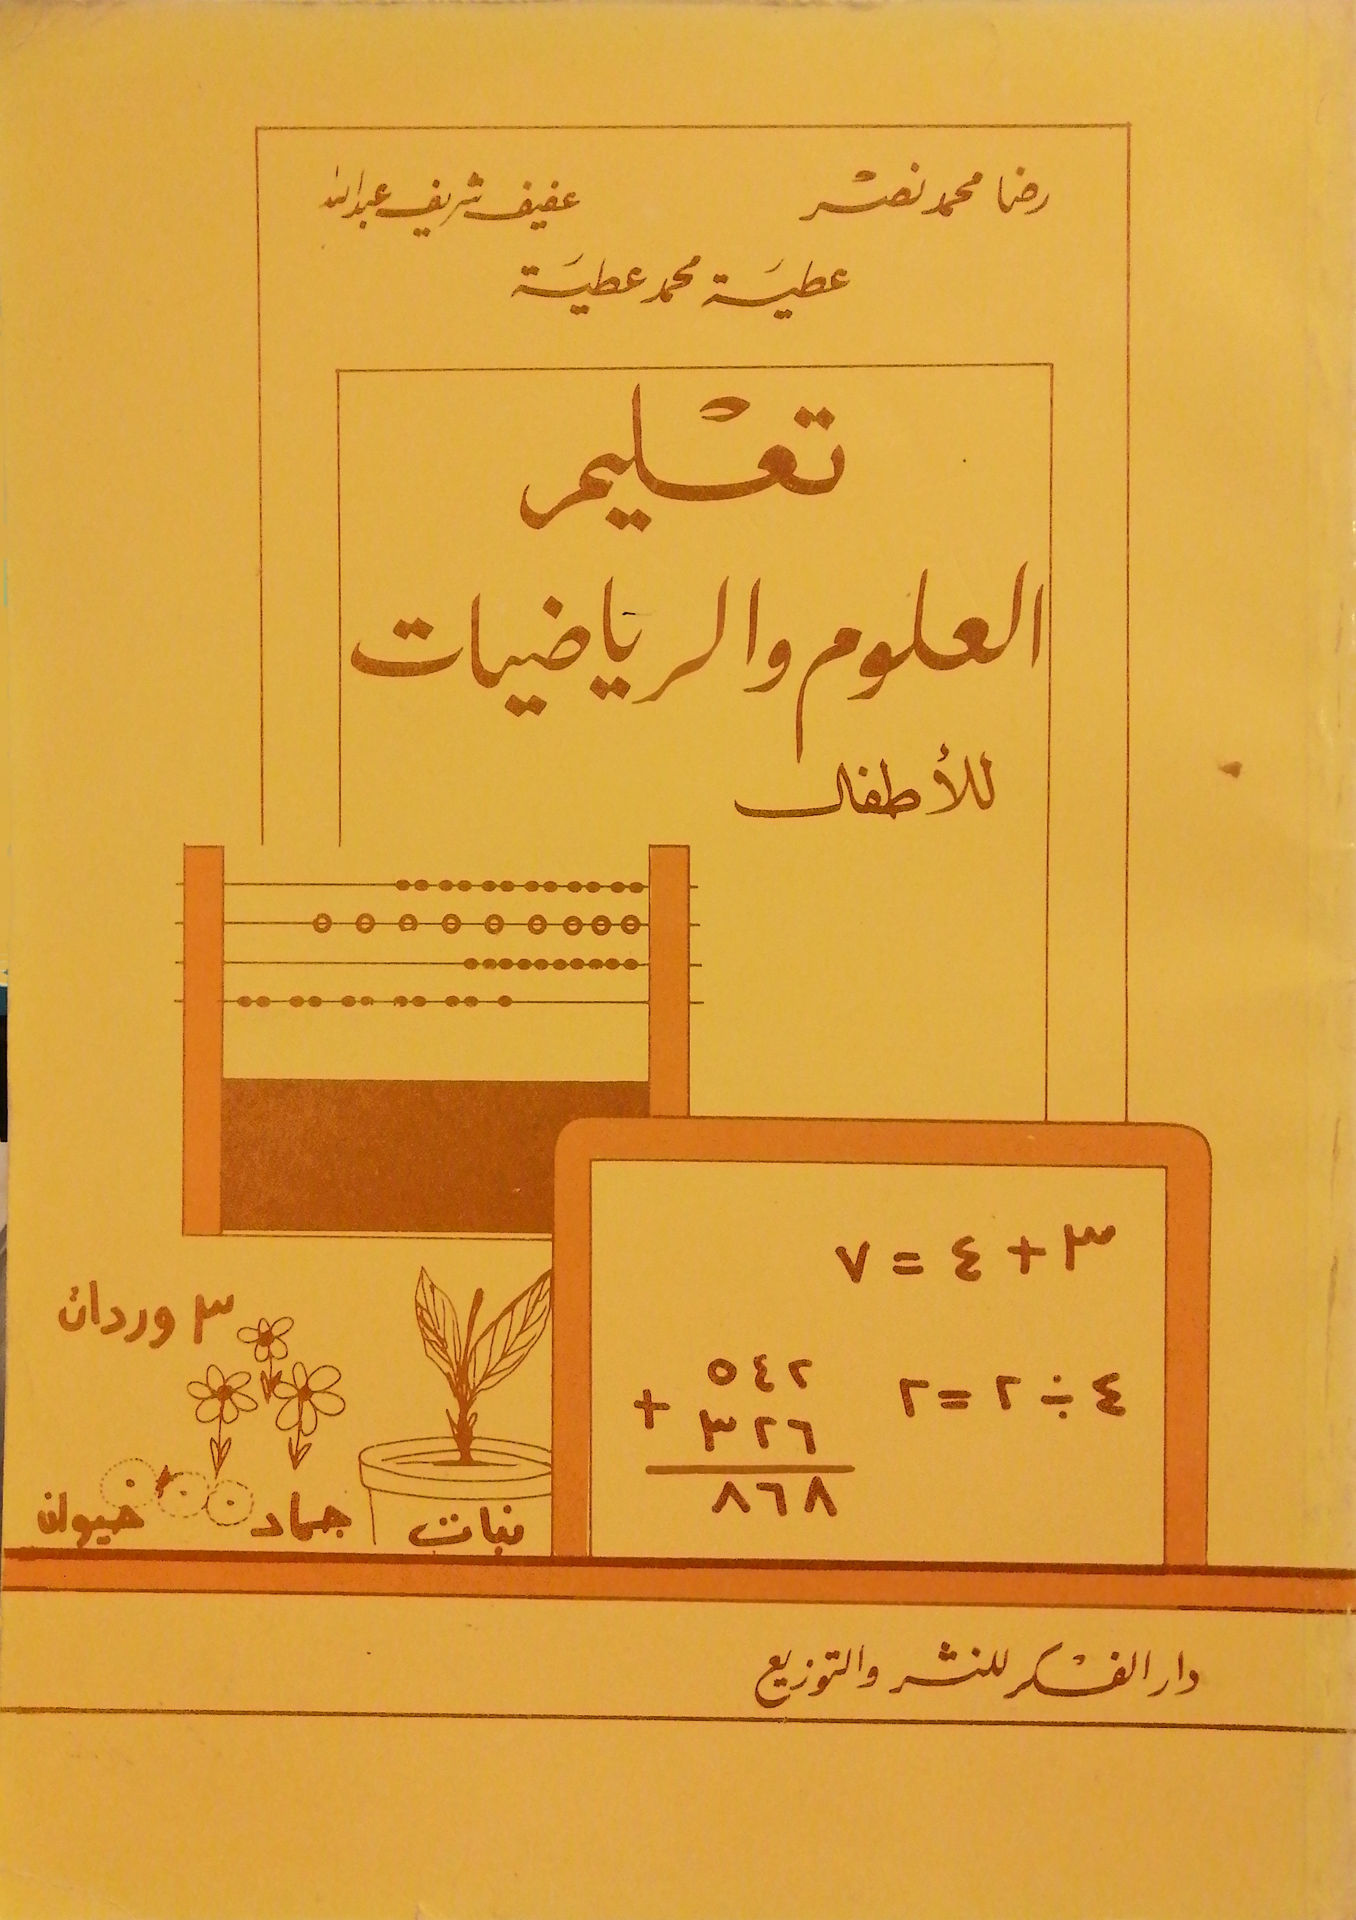 رضا محمد نصر
عفيف شريف عبدالله
عطية محمد عطية
تعليم
العلوم والرياضيات
للأطفال
٣ + ٤ = ٧
٤ ÷ ٢ = ٢
٥٤٢
+
٣٢٦
٨٦٨
٣ وردات
نبات
جماد
حيوان
دار الفكر للنشر والتوزيع